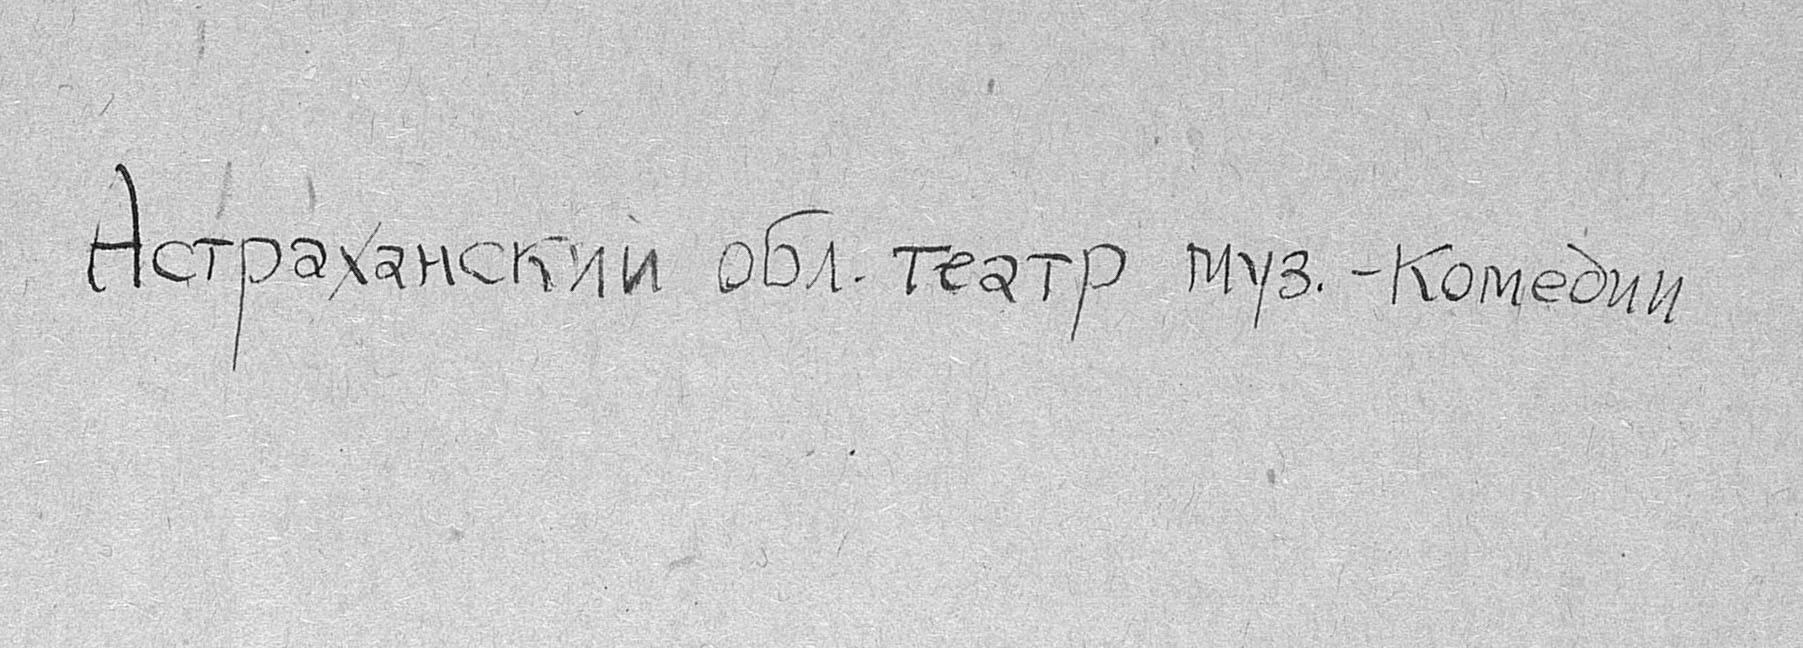 Астраханский обл. театр муз. -Комедии